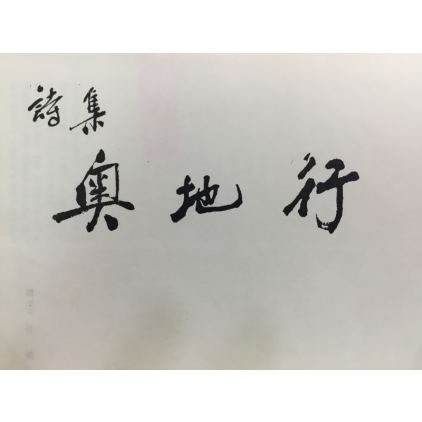 詩集
奥地行